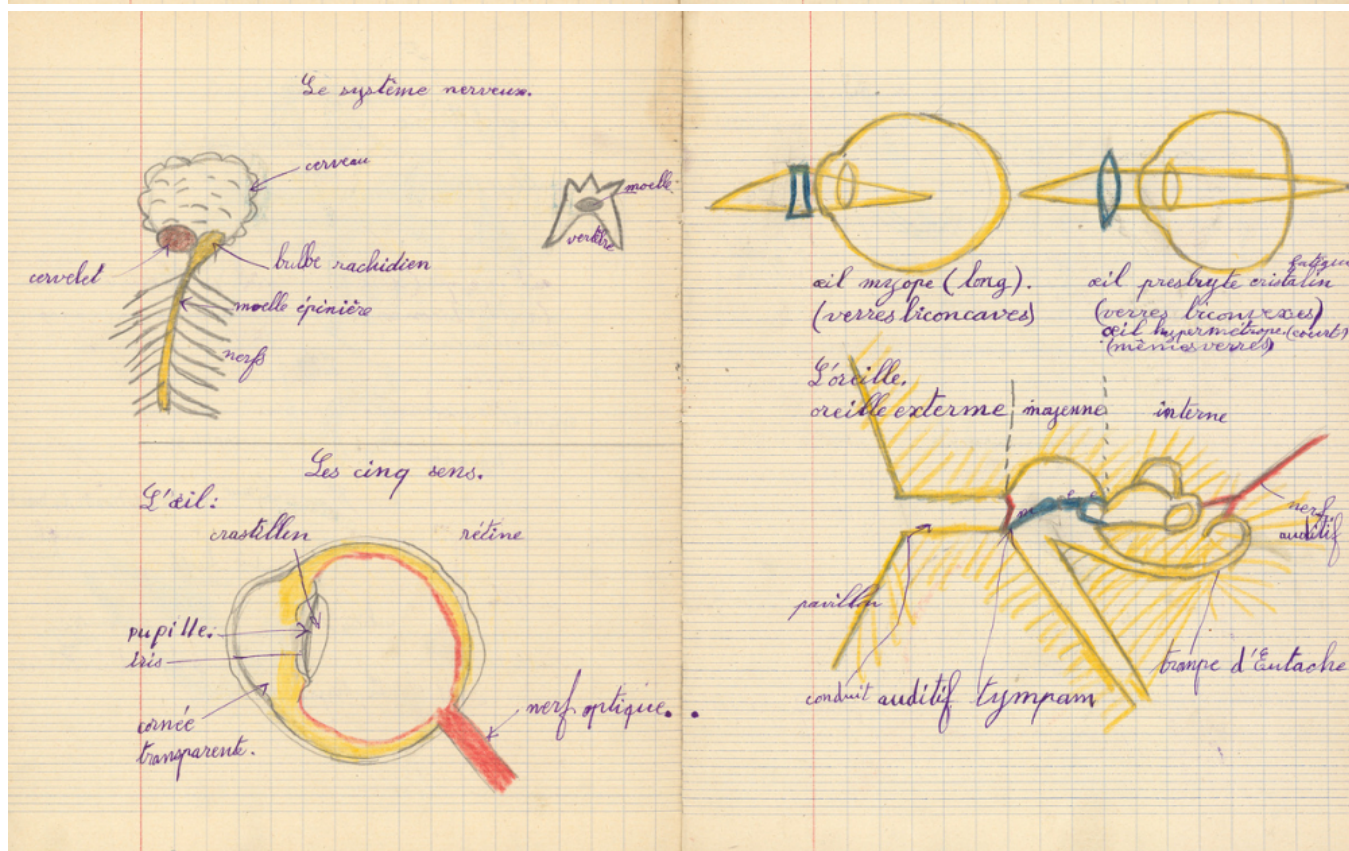 Le système nerveux.
cerveau
moelle
vertèbre
cervelet
bulbe rachidien
moelle épinière
nerfs
Les cinq sens.
L'œil:
crastillen
rétine
pupille.
iris
cornée
transparente.
nerf optique.
œil myope (long).
(verres biconcaves)
fatigué
œil presbyte cristalin
(verres biconvexes)
œil hypermétrope (courts)
(mêmes verres)
L'oreille.
oreille externe moyenne interne
m e e
nerf
auditif
pavillon
conduit auditif tympam
trompe d'Eutache